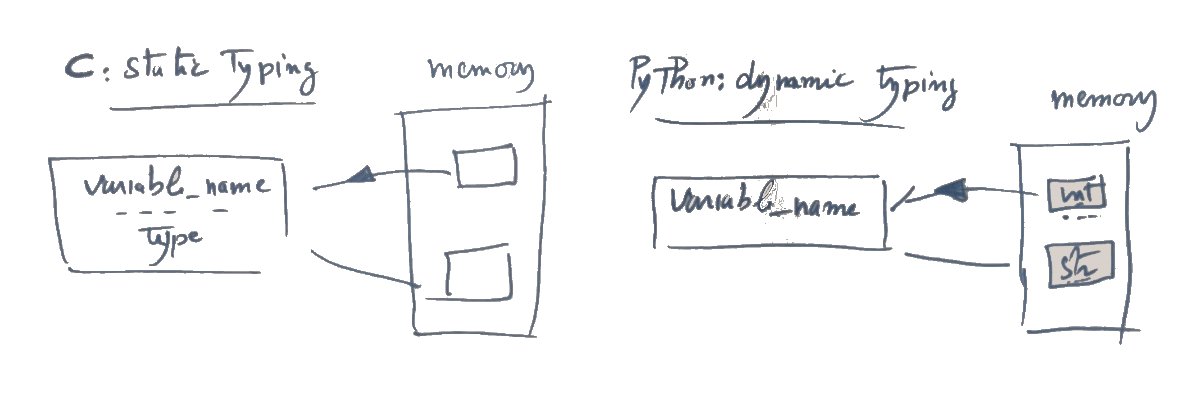 C: static Typing
memory
variable_name
Type
Python: dynamic typing
memory
variable_name
int
str